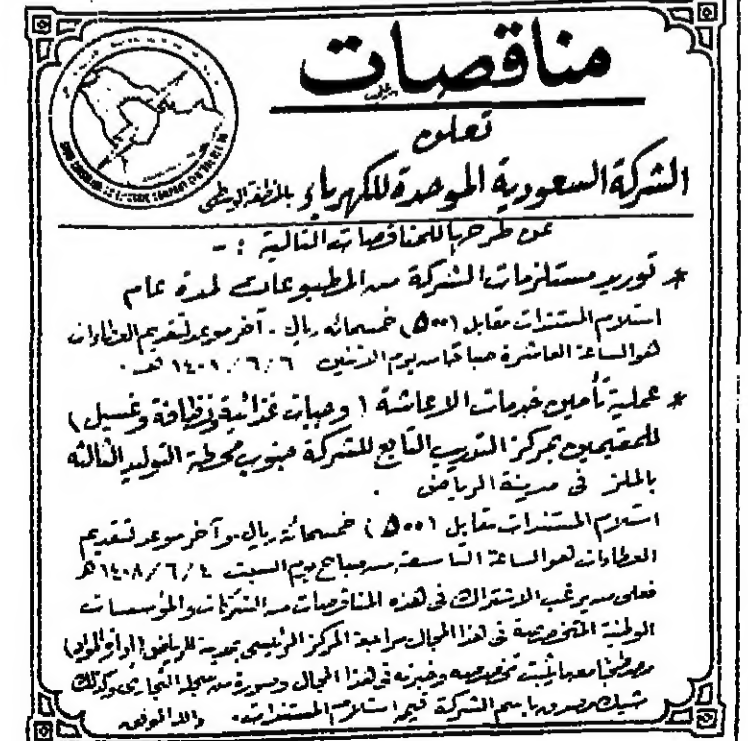 مناقصات
تعلن
الشركة السعودية الموحدة للكهرباء بالمنطقة الوسطى
عن طرحها للمناقصات التالية :-
* توريد مستلزمات الشركة من المطبوعات لمدة عام
استلام المستندات مقابل (٥٠٠) خمسمائه ريال - آخر موعد لتقديم العطاءات
هو الساعة العاشرة صباحا من يوم الاثنين ٦/٦/١٤٠٨ هـ.
* عملية تأمين خدمات الاعاشة (وجبات غذائية ونظافة وغسيل)
للمقيمين بمركز التدريب التابع للشركة جنوب محطة التوليد الثالثه
بالملز في مدينة الرياض .
استلام المستندات مقابل (٥٠٠) خمسمائة ريال - وآخر موعد لتقديم
العطاءات هو الساعة التاسعة من صباح يوم السبت ٤/٦/١٤٠٨ هـ
فعلى من يرغب الاشتراك في هذه المناقصات من الشركات والمؤسسات
الوطنية المتخصصة في هذا المجال مراجعة المركز الرئيسي بمدينة الرياض (ادارة المواد)
مصطحبا معه ما يثبت تخصصه وخبرته في هذا المجال وصورة من سجله التجاري وكذلك
شيك مصدق باسم الشركة قيمة استلام المستندات. والله الموفق